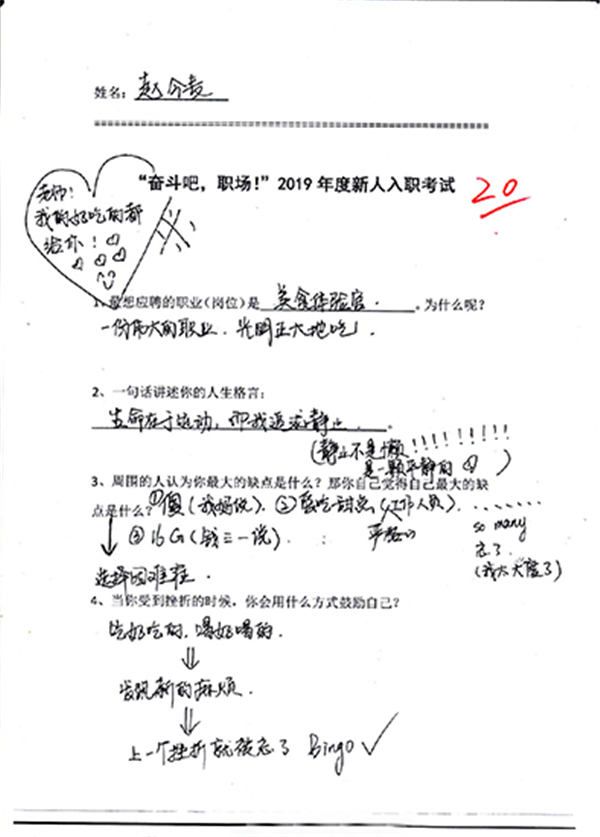 姓名：赵今麦
“奋斗吧，职场！”2019 年度新人入职考试
20
老师！
我的好吃的都
给你！
1、最想应聘的职业（岗位）是 美食体验官 。为什么呢？
一份伟大的职业，光明正大地吃！
2、一句话讲述你的人生格言：
生命在于运动，而我追求静止。
（静止不是懒！！！！！！！！！
是一颗平静的 ）
3、周围的人认为你最大的缺点是什么？那你自己觉得自己最大的缺
点是什么？①傻（我妈说）.②要吃甜点（工作人员）.
③16G（钱三一说）.
so many
忘了.
（我太天隆了）
选择困难症.
4、当你受到挫折的时候，你会用什么方式鼓励自己？
吃好吃的，喝好喝的.
发现新的麻烦.
上一个挫折就被忘了 Bingo